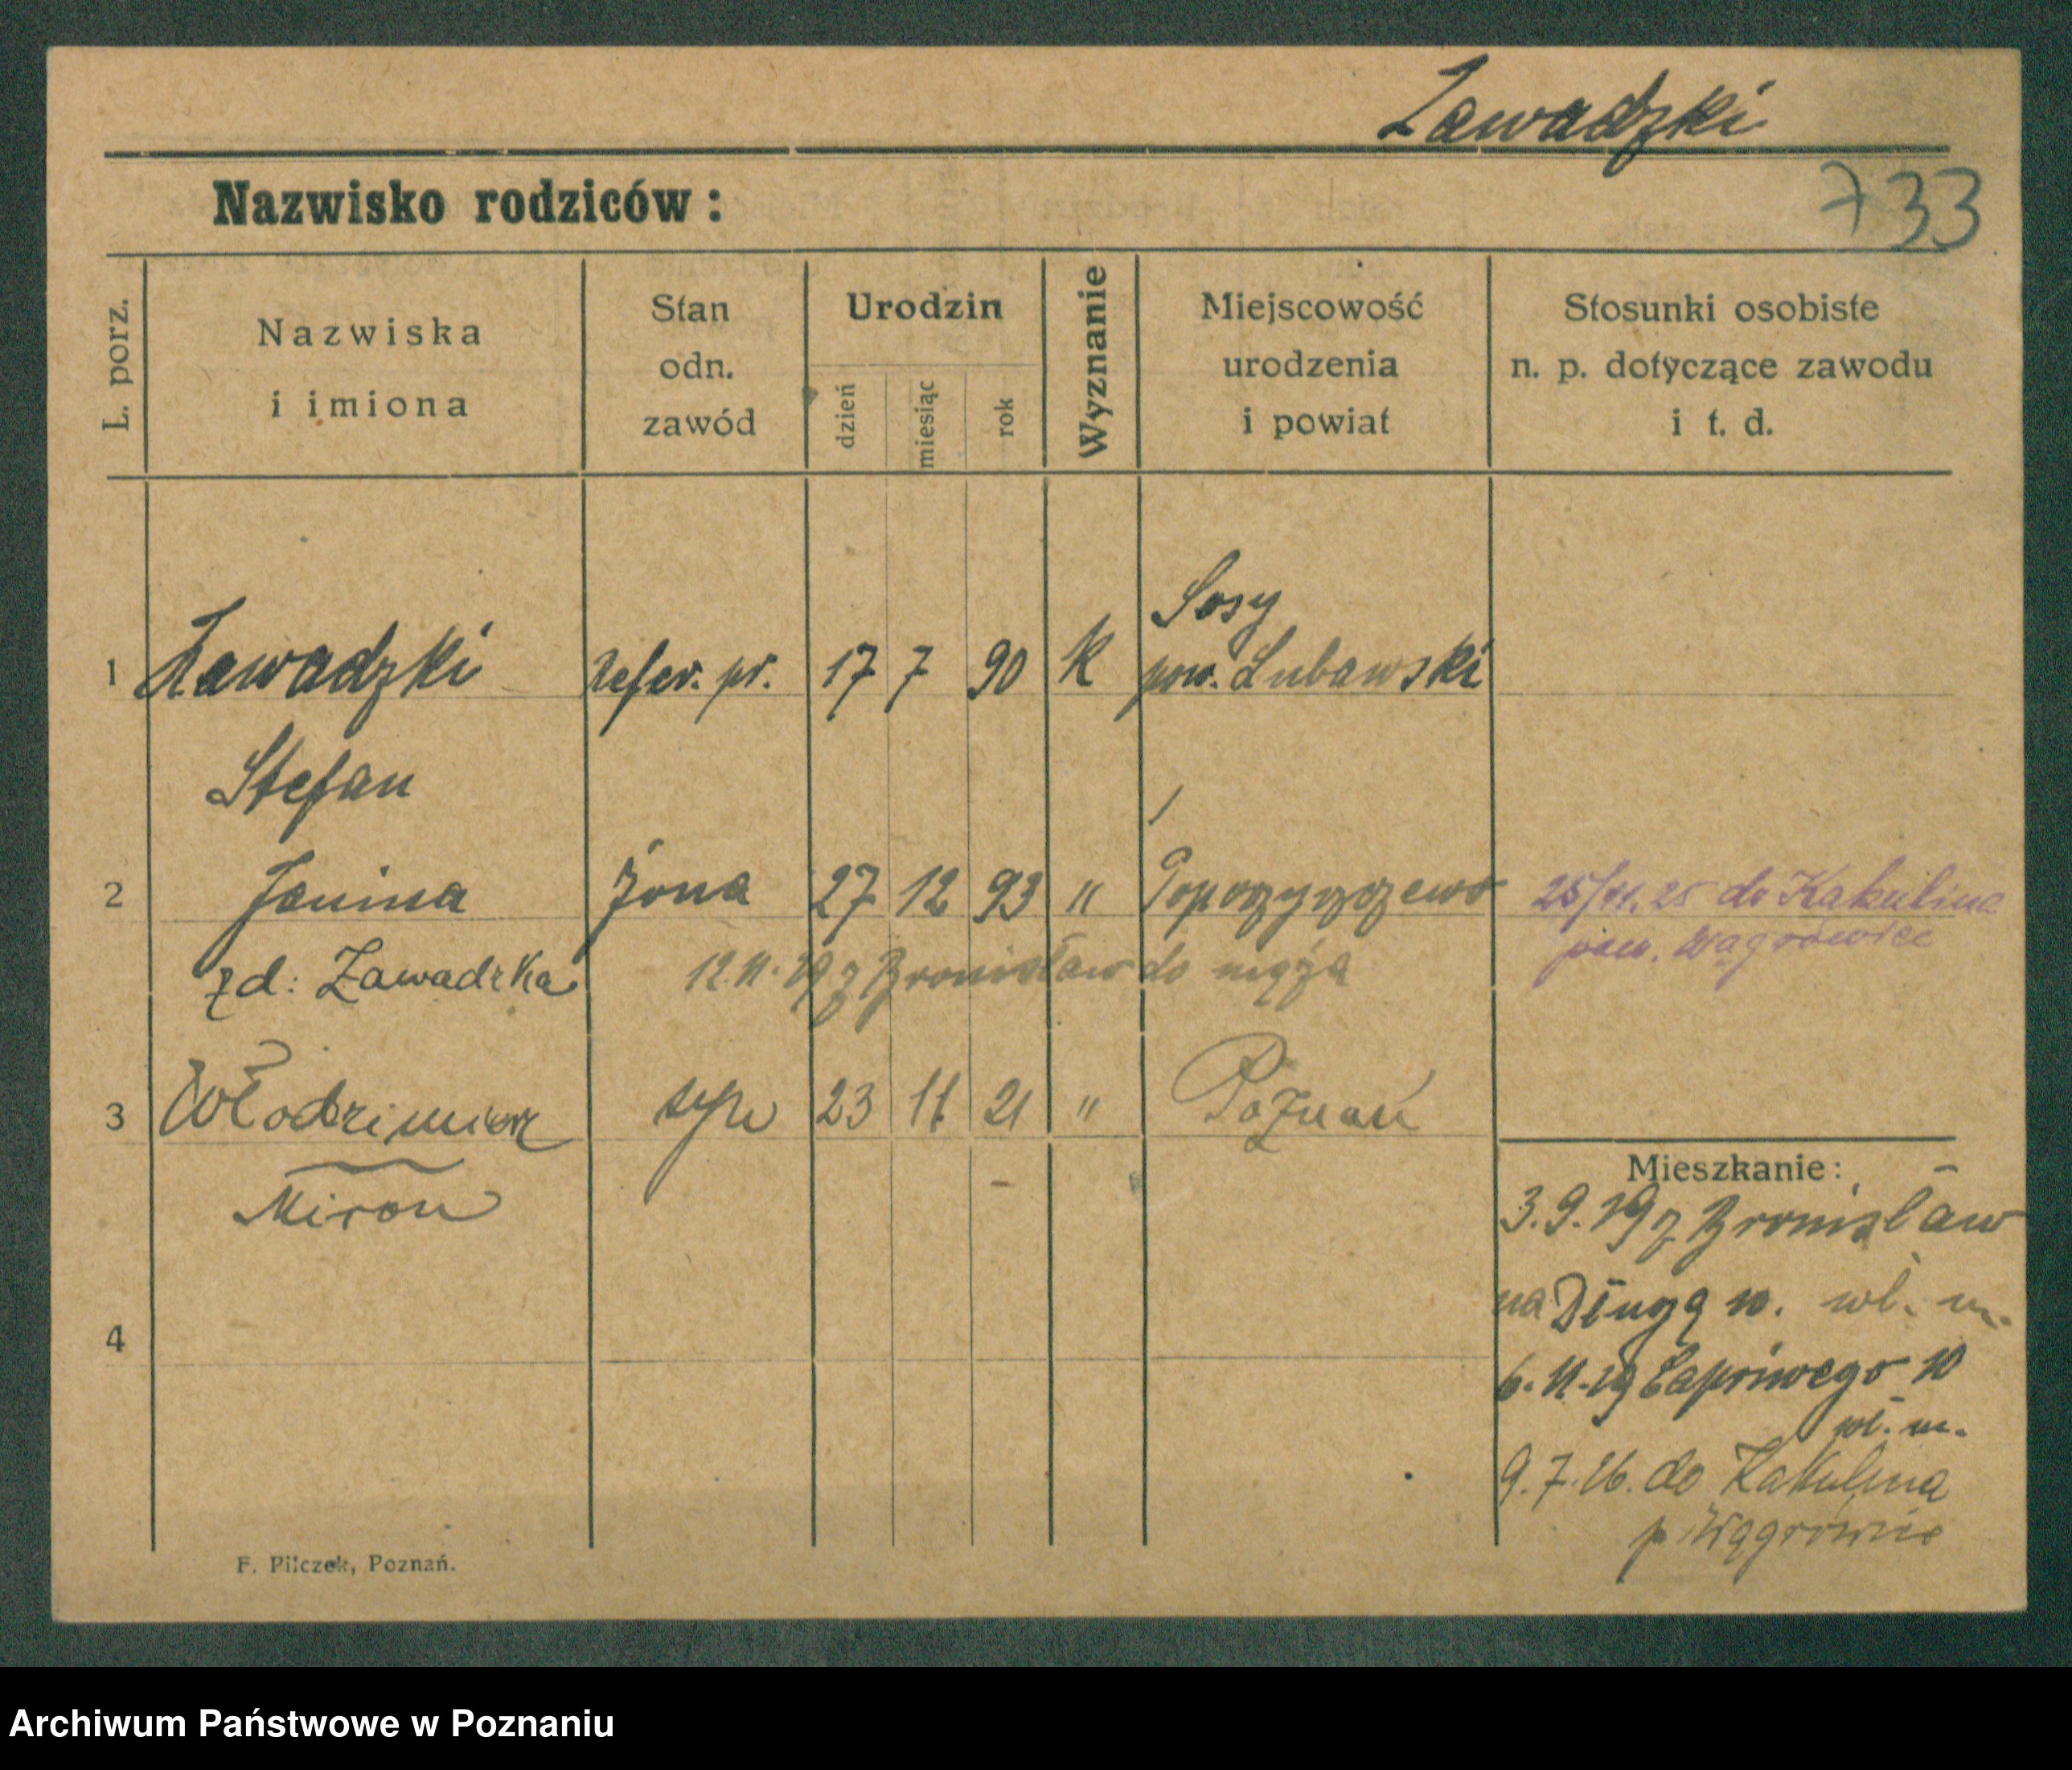 Zawadzki
Nazwisko rodziców:
733
L. porz.
Nazwiska
i imiona
Stan
odn.
zawód
Urodzin
dzień
miesiąc
rok
Wyznanie
Miejscowość
urodzenia
i powiat
Stosunki osobiste
n. p. dotyczące zawodu
i t. d.
Sosy
1 Zawadzki Refer. pr. 17 7 90 K pow. Lubawski
Stefan
2 Janina żona 27 12 93 " 25/11.25 do Kakulina
pow. Wągrowiec
zd: Zawadzka 12.11.19 z Bronisław do męża
3 Włodzimierz syn 23 11 21 " Poznań
Miron
Mieszkanie:
3.9.19 z Bronisław
na Długą 10. wł. m.
4
6.11.19 10
wł. m.
9.7.26. do Kakulina
p. Wągrowiec
F. Pilczek, Poznań.
Archiwum Państwowe w Poznaniu